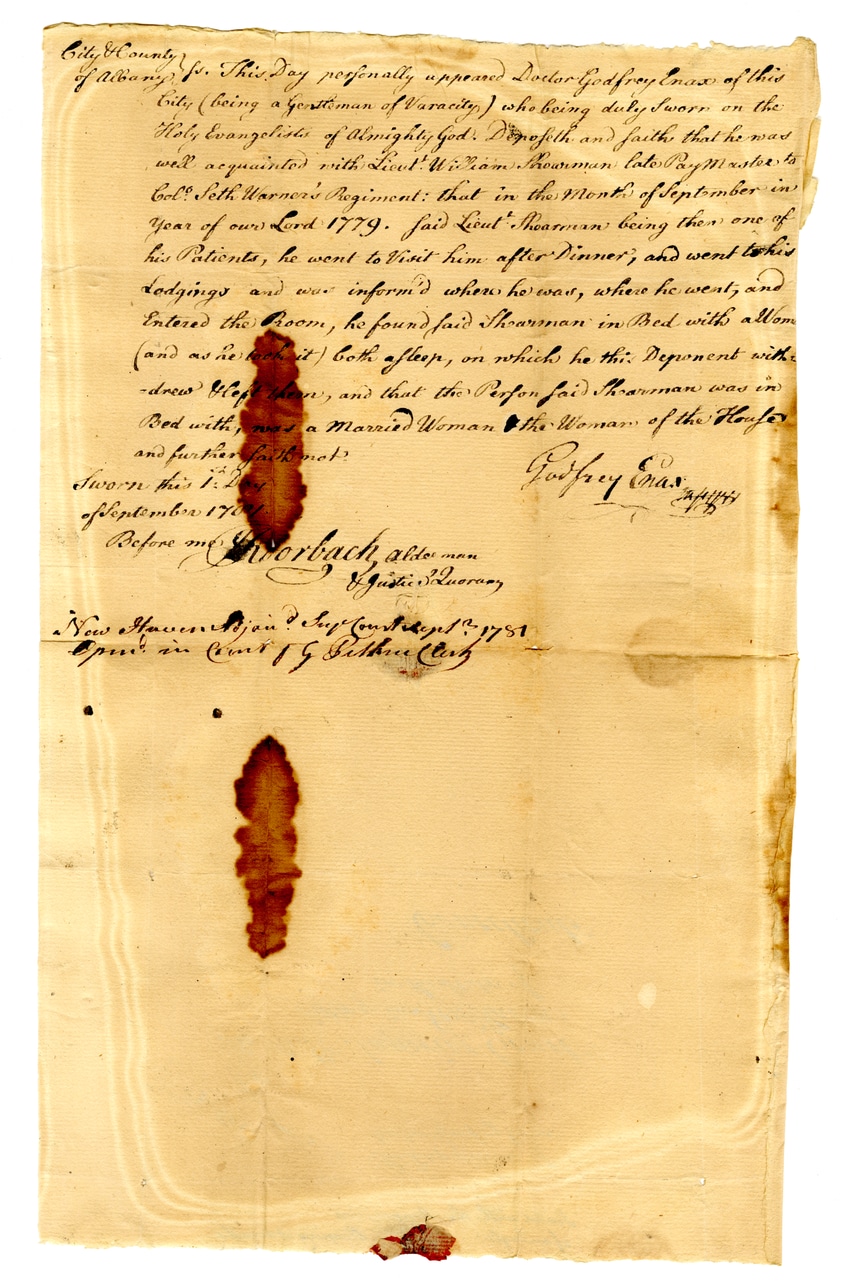 City & County
of Albany ss. This Day personally appeared Doctor Godfrey Enax of this
City (being a Gentleman of Varacity) who being duly Sworn on the
Holy Evangelists of Almighty God. Deposeth and saith that he was
well acquainted with Lieut.t William Shearman late Pay Master to
Col.o Seth Warner's Regiment: that in the Month of September in
Year of our Lord 1779. said Lieut.t Shearman being then one of
his Patients, he went to Visit him after Dinner, and went to his
Lodgings and was inform'd where he was, where he went, and
Entered the Room, he found said Shearman in Bed with a Wom
(and as he took it) both asleep, on which he this Deponent with=
-drew & left them, and that the Person said Shearman was in
Bed with, was a Married Woman & the Woman of the House
and further saith not.
Godfrey Enax
Sworn this 1.st Day
of September 1781
Before me Roorbach, Alderman
& Justice Quorum
New Haven Adjou.d Sup Court Sept.r 1781
Open.d in Court G Pitkin Clerk